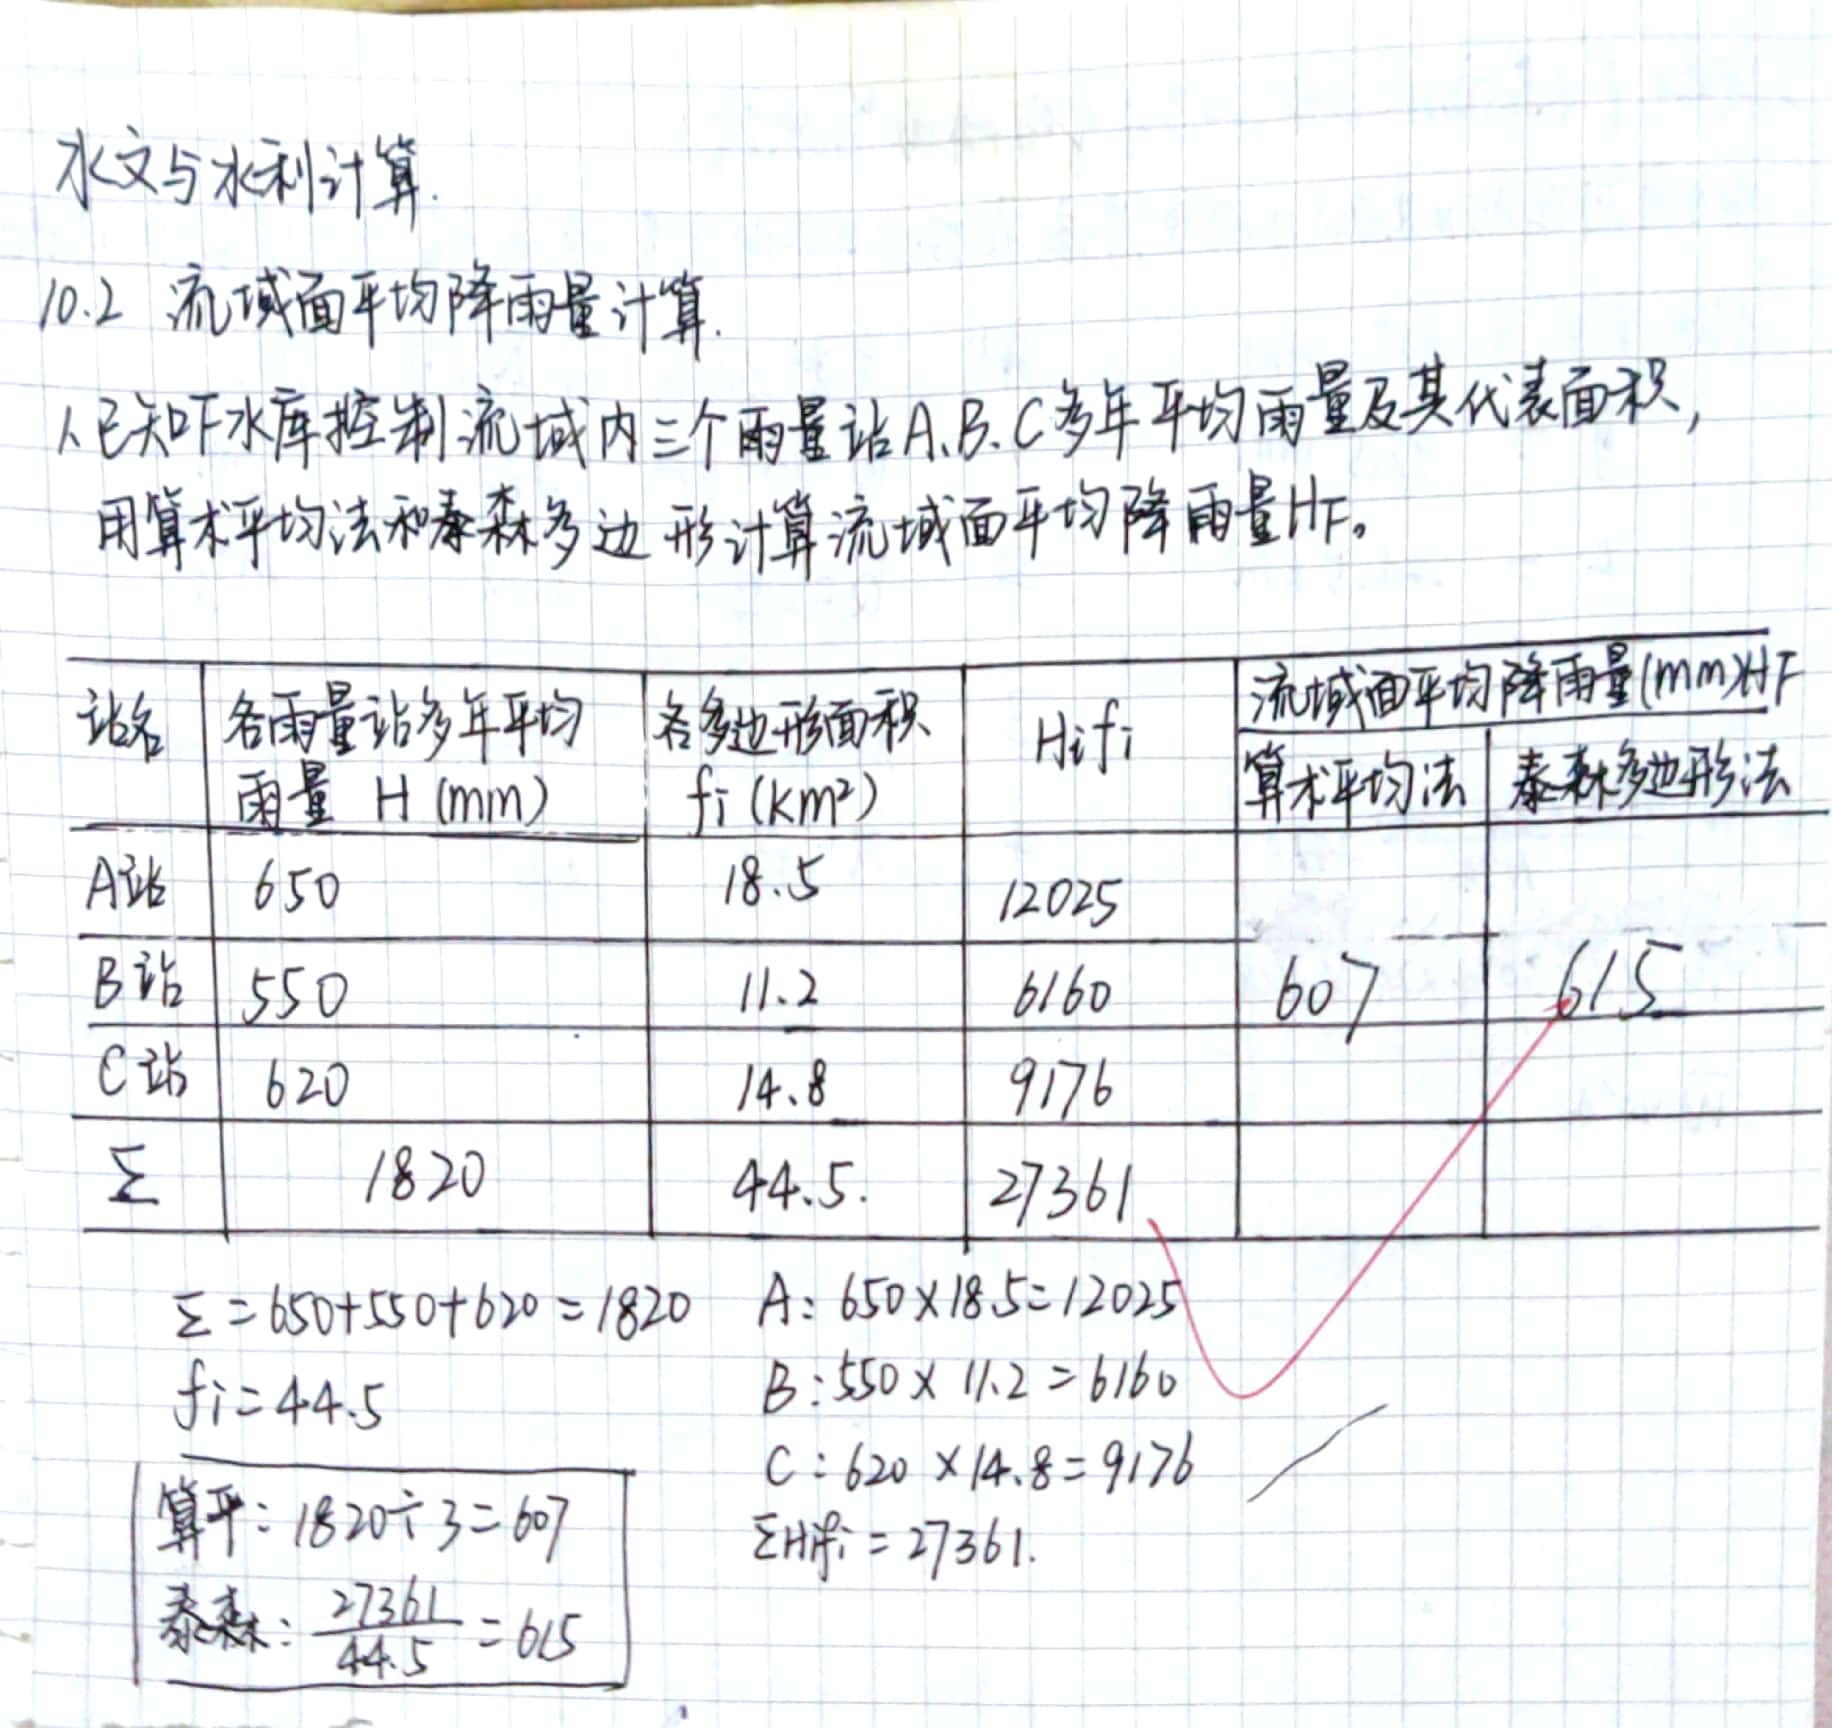 水文与水利计算.
10.2 流域面平均降雨量计算.
1.已知下水库控制流域内三个雨量站A.B.C多年平均雨量及其代表面积,
用算术平均法和泰森多边形计算流域面平均降雨量HF。
站名 各雨量站多年平均雨量 H (mm) 各多边形面积 fi (km²) Hifi 流域面平均降雨量(mm)HF
算术平均法 泰森多边形法
A站 650 18.5 12025
B站 550 11.2 6160 607 615
C站 620 14.8 9176
Σ 1820 44.5. 27361
Σ=650+550+620=1820 A: 650×18.5=12025
fi=44.5 B:550×11.2=6160
C:620×14.8=9176
算平: 1820÷3=607 ΣHifi=27361.
泰森: 27361/44.5=615